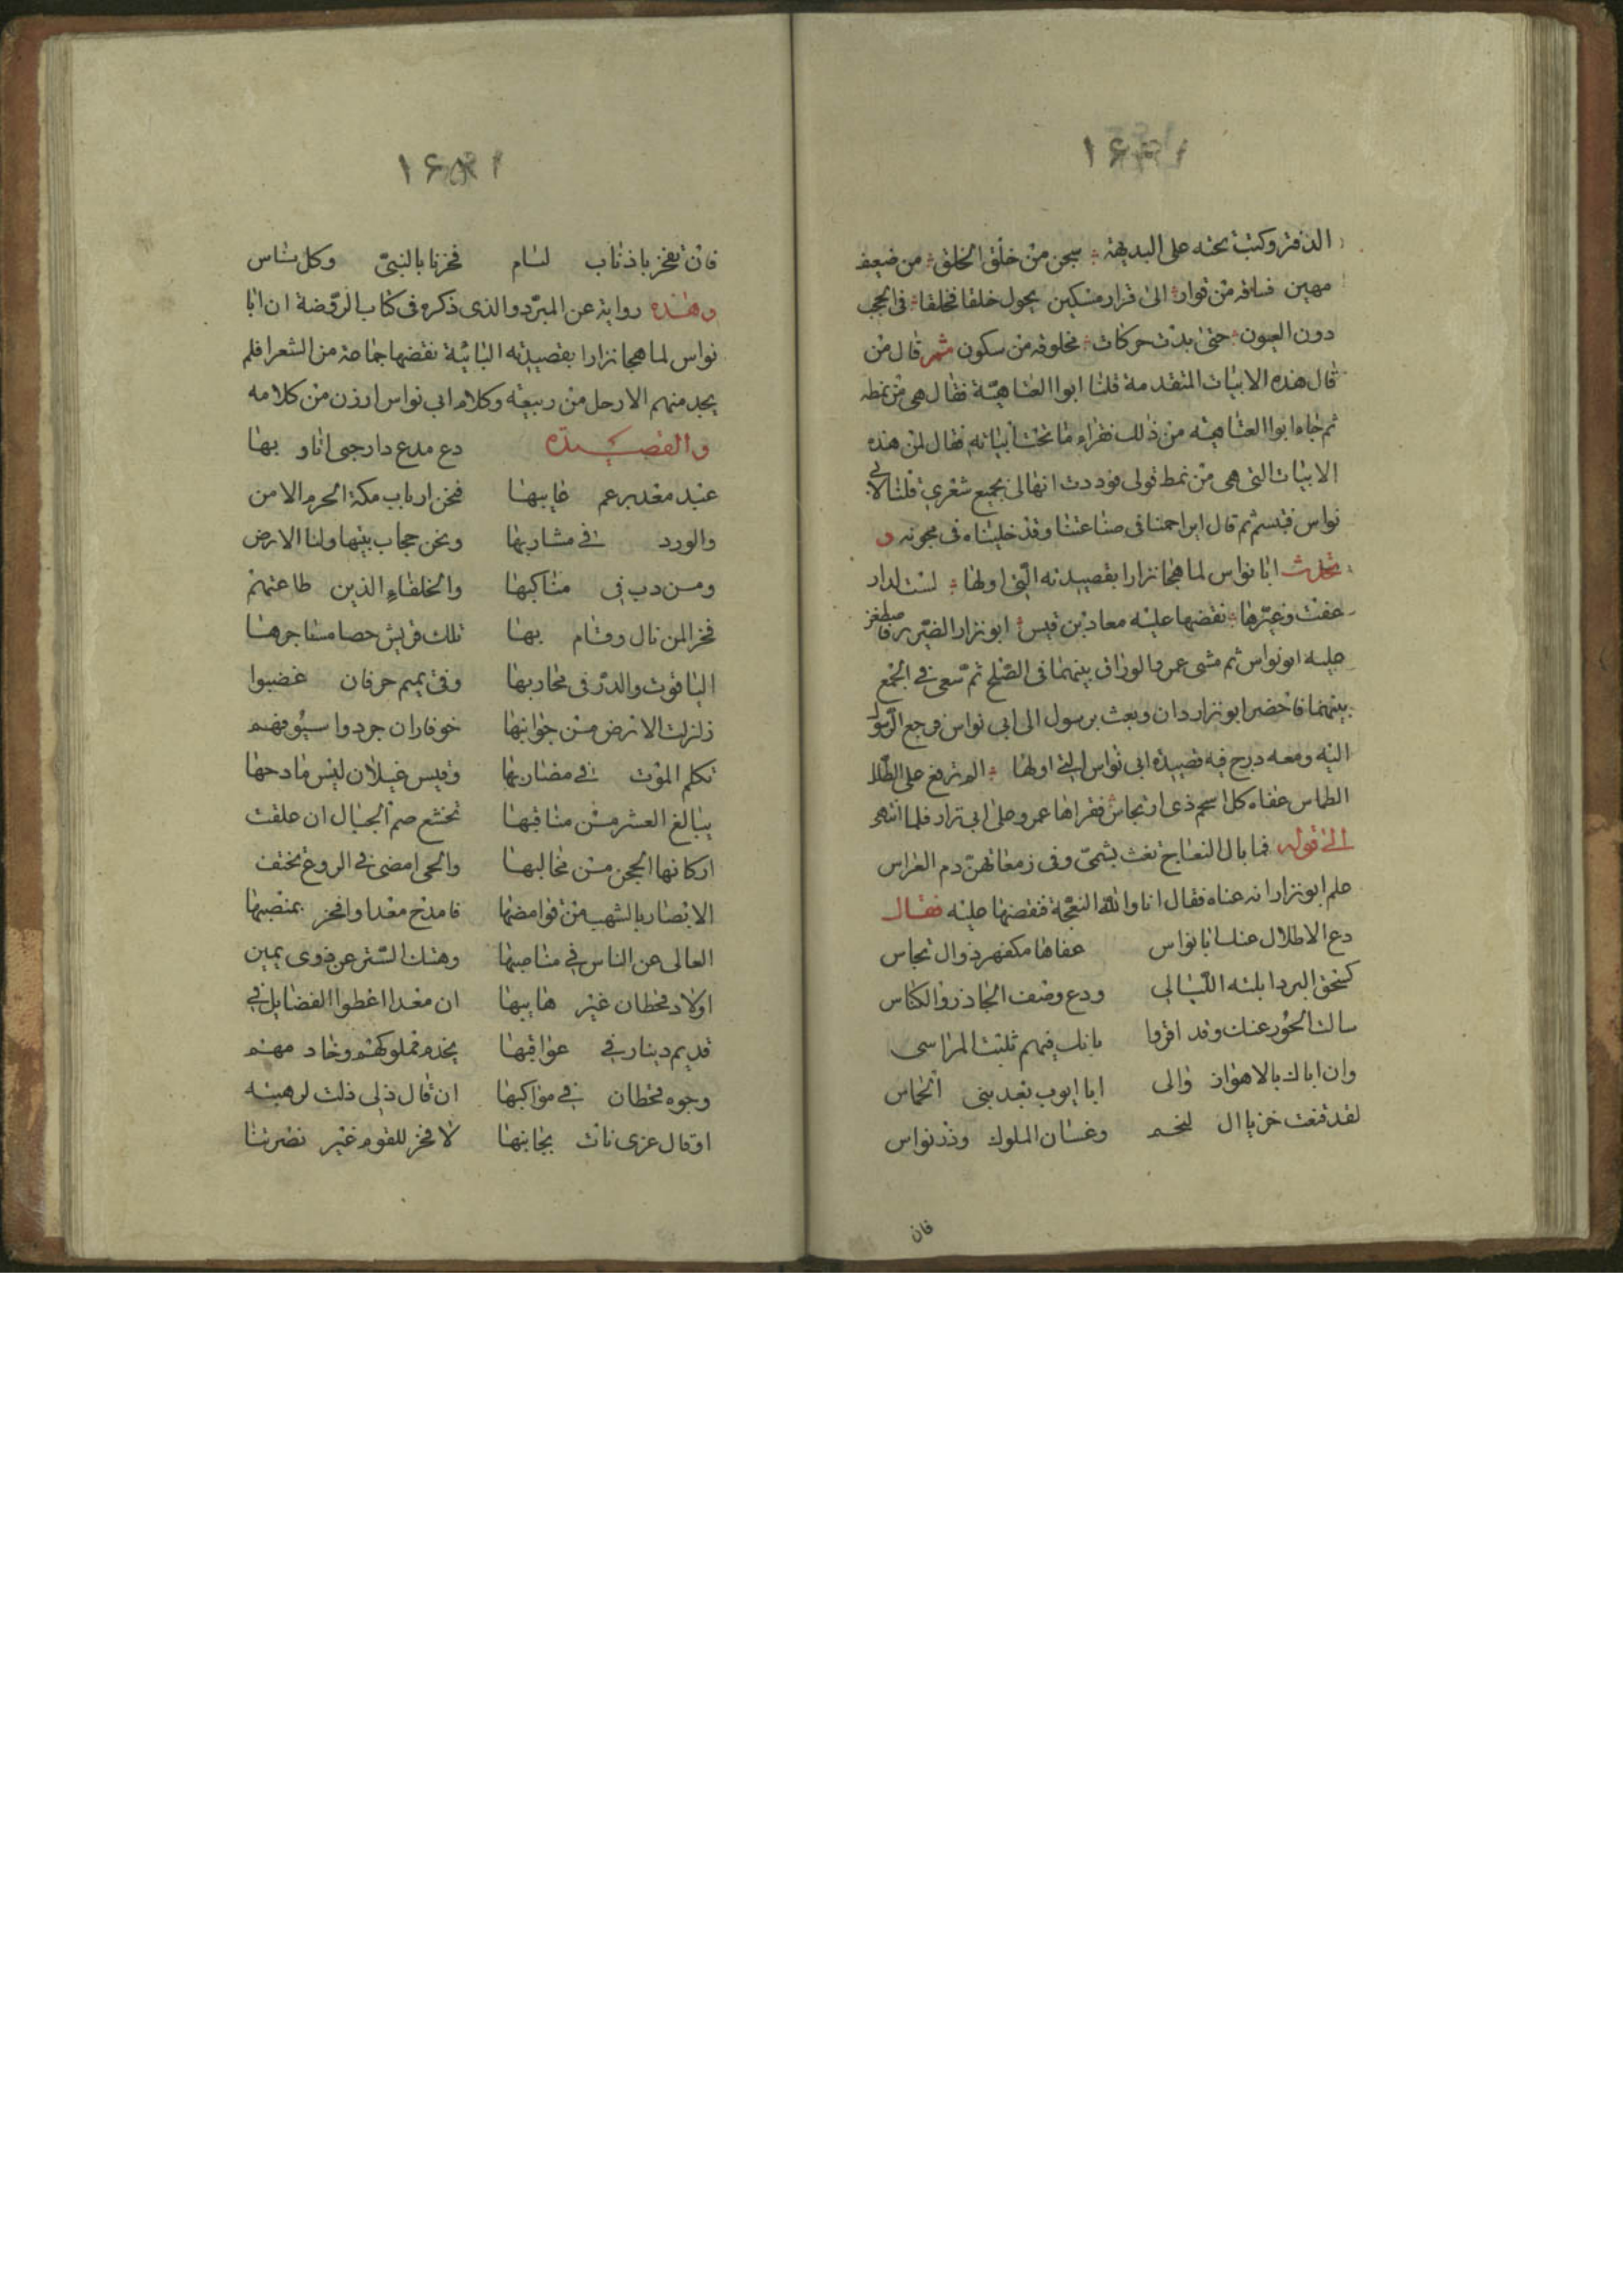 الدفتر وكتب تحته على البديهة سبحن من خلق الخلق من ضعيف
مهين فساقه من قرار الى قرار مسكين يحول خلقا فخلقا فى الحجب
دون العيون حتى بدت حركات مخلوقه من سكون ثم قال من
قال هذه الابيات المتقدمة قلنا ابوا العتاهيّة فقال هى من نمطه
ثم جاء ابوا العتاهيه من ذلك فقراء ما تحت أبياته فقال لمن هذه
الابيات التى هى من نمط قولى فوددت انها لى بجميع شعري قلنا لابي
نواس فتبسم ثم قال ايزاحمنا فى صناعتنا وقد خليناه فى مجونه و
تحدث ابا نواس لما هجا نزارا بقصيدته الّتى اولها لست لدار
عفت وغيّرها نقضها عليه معاد بن قيس ابو نزار الضّرير
عليه ابو نواس ثم مشى عمرو الوراق بينهما فى الصّلح ثم سّعى في الجمع
بينهما فاحضر ابو نزار دان وبعث برسول الى ابى نواس فرجع الرّسول
اليه ومعه درج فيه قصيدة ابى نواس التي اولها الم تربع على الطلل
الطماس عفاه كل اسحم ذى ارتجاس فقراها عمرو على ابى نزار فلما انتهى
الى قوله فما بال النعاج ثغت بشمىّ وفى زمعاتهنّ دم الغراس
علم ابو نزار انه عناه فقال انا والله النعجة فنقضها عليه فقال
دع الاطلال عنك ابا نواس عفاها مكفهر ذو ال تجاس
كسحق البرد ابلته اللّيالي ودع وصف الجاذر والكناس
سالت الحور عنك وقد اقروا بانك فيهم ثلبت المراسى
وان اباك بالاهواز والى ابا ايوب بعد بنى الحماس
لقد قنعت خزيا ال لخم وغسان الملوك وذذ نواس
فان
فان تفخر باذناب لئام فخرنا بالنبىّ وكل ناس
وهذه رواية عن المبرّد والذى ذكره فى كتاب الرّوضة ان ابا
نواس لما هجا نزارا بقصيدته البائية نقضها جماعة من الشعرا فلم
يجد منهم الا رجل من ربيعة وكلام ابى نواس ارزن من كلامه
والقصيدة دع مدع دارجى اناو بها
عند معد برعم غايبها فنحن ارباب مكة الحرم الامن
والورد في مشاربها ونحن حجاب بيتها ولنا الارض
ومن دب فى مناكبها والخلفاء الذين طاعتهم
فخر المن نال وقام بها تلك قريش حصا مساجرها
الياقوت والدرّ فى محاربها وفى تميم حرفان غضبوا
زلزلت الارض من جوانبها خوفاران جردوا سيُوفهم
تكلم الموت في مضاربها وقيس غيلان ليس مادحها
يبالغ العشر من مناقبها تخشع صم الجبال ان علقت
اركانها الحجن من مخالبها والحى امضى في الروع تختف
الابصار بالشهب من قوامضها فامدح معدا وافخر بمنصبها
العالى عن الناس في مناصبها وهتك السّتر عن ذوى يمين
اولاد قحطان غير هايبها ان معدا اعطوا الفضايل فى
قديم دينار في عواقبها يخدم مملوكهم وخاد مهم
وجوه قحطان في مواكبها ان قال ذلى ذلت لرهبته
اوقال عزى نات بجانبها لا فخر للقوم غير نصرتنا